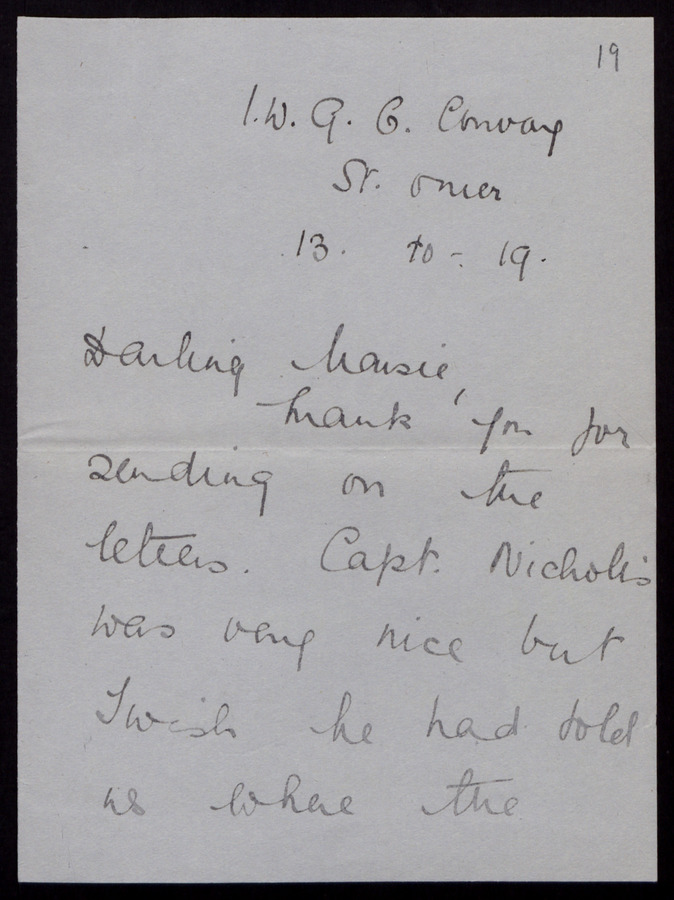 19
I.W.G.C. Convoy
St. Omer
13. 10 - 19.
Darling Maisie,
Thank you for
sending on the
letters. Capt. Nicholls
was very nice but
I wish he had told
us where the